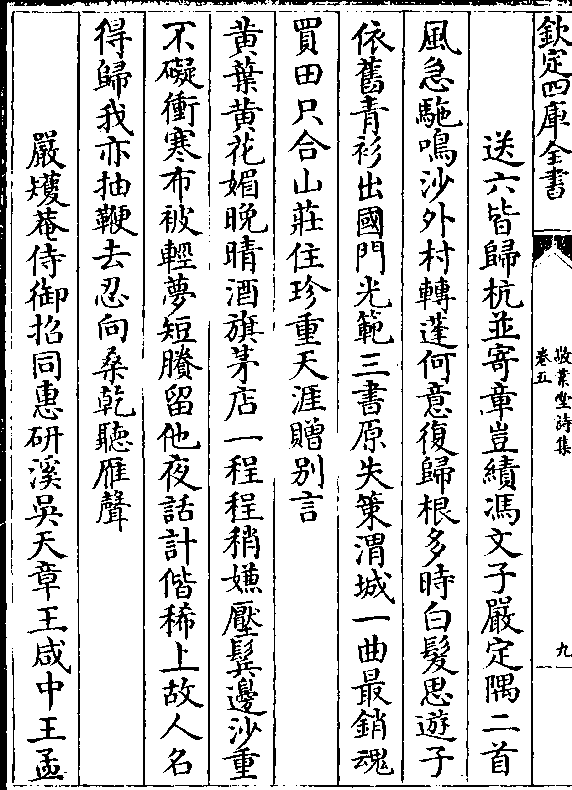 欽定四庫全書
敬業堂詩集
卷五
九
送六皆歸杭並寄章豈績馮文子嚴定隅二首
風急駞鳴沙外村轉蓬何意復歸根多時白髮思遊子
依舊青衫出國門光範三書原失策渭城一曲最銷魂
買田只合山莊住珍重天涯贈别言
黄葉黄花媚晚晴酒旗茅店一程程稍嫌壓鬂邊沙重
不礙衝寒布被輕夢短賸留他夜話計偕稀上故人名
得歸我亦抽鞭去忍向桑乾聽雁聲
嚴矱菴侍御招同惠研溪吳天章王咸中王孟